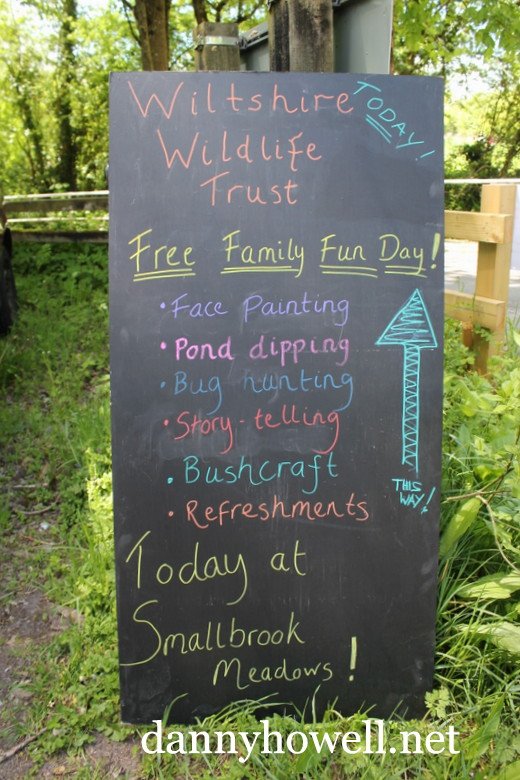 Wiltshire
TODAY!
Wildlife
Trust
Free Family Fun Day!
• Face Painting
• Pond dipping
• Bug hunting
• Story-telling
• Bushcraft
• Refreshments
THIS WAY!
Today at
Smallbrook
Meadows!
dannyhowell.net